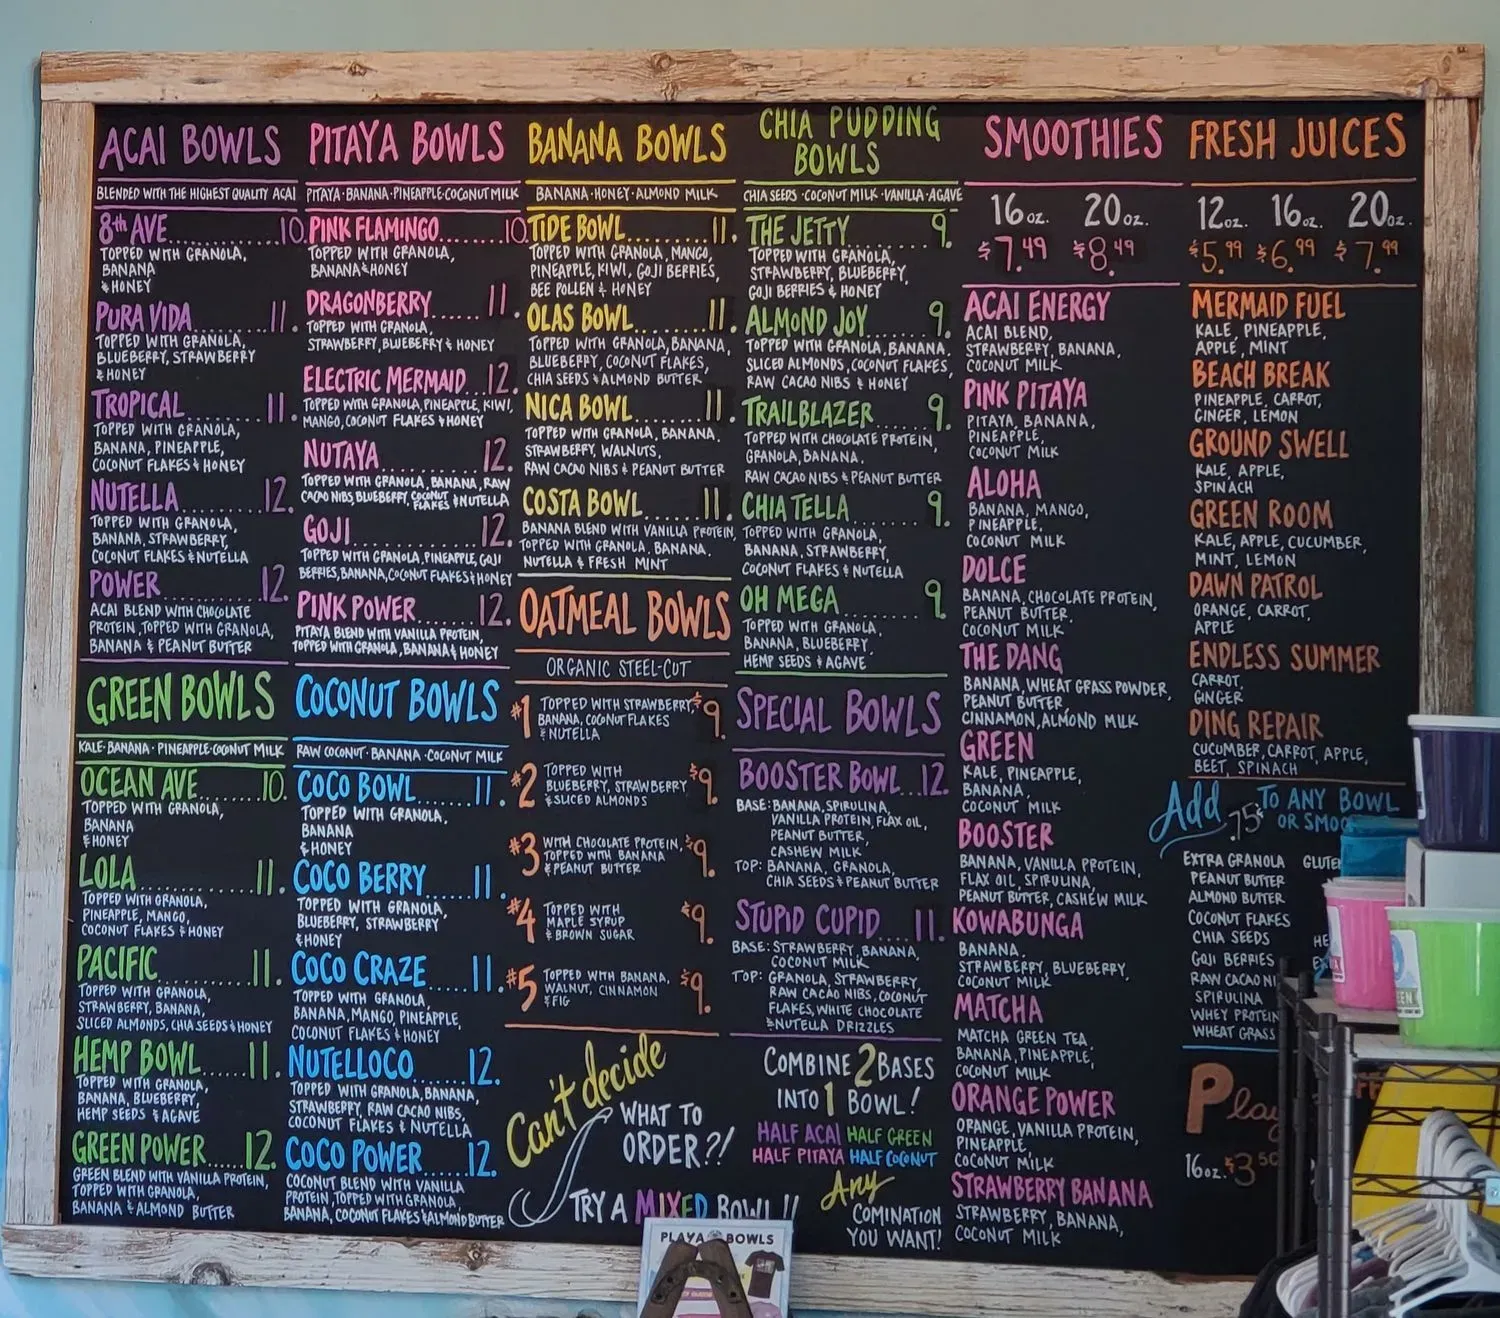 ACAI BOWLS
BLENDED WITH THE HIGHEST QUALITY ACAI
8th AVE 10.
TOPPED WITH GRANOLA,
BANANA
& HONEY
PURA VIDA....... 11.
TOPPED WITH GRANOLA,
BLUEBERRY, STRAWBERRY
& HONEY
TROPICAL........ 11.
TOPPED WITH GRANOLA,
BANANA, PINEAPPLE,
COCONUT FLAKES & HONEY
NUTELLA........ 12.
TOPPED WITH GRANOLA,
BANANA, STRAWBERRY,
COCONUT FLAKES & NUTELLA
POWER.......... 12.
ACAI BLEND WITH CHOCOLATE
PROTEIN, TOPPED WITH GRANOLA,
BANANA & PEANUT BUTTER
GREEN BOWLS
KALE·BANANA·PINEAPPLE·COCONUT MILK
OCEAN AVE...... 10.
TOPPED WITH GRANOLA,
BANANA
& HONEY
LOLA............ 11.
TOPPED WITH GRANOLA,
PINEAPPLE, MANGO,
COCONUT FLAKES & HONEY
PACIFIC......... 11.
TOPPED WITH GRANOLA,
STRAWBERRY, BANANA,
SLICED ALMONDS, CHIA SEEDS & HONEY
HEMP BOWL..... 11.
TOPPED WITH GRANOLA,
BANANA, BLUEBERRY,
HEMP SEEDS & AGAVE
GREEN POWER.... 12.
GREEN BLEND WITH VANILLA PROTEIN,
TOPPED WITH GRANOLA,
BANANA & ALMOND BUTTER
PITAYA BOWLS
PITAYA·BANANA·PINEAPPLE·COCONUT MILK
PINK FLAMINGO....... 10.
TOPPED WITH GRANOLA,
BANANA & HONEY
DRAGONBERRY...... 11.
TOPPED WITH GRANOLA,
STRAWBERRY, BLUEBERRY & HONEY
ELECTRIC MERMAID.. 12.
TOPPED WITH GRANOLA, PINEAPPLE, KIWI,
MANGO, COCONUT FLAKES & HONEY
NUTAYA......... 12.
TOPPED WITH GRANOLA, BANANA, RAW
CACAO NIBS, BLUEBERRY, COCONUT FLAKES & NUTELLA
GOJI............ 12.
TOPPED WITH GRANOLA, PINEAPPLE, GOJI
BERRIES, BANANA, COCONUT FLAKES & HONEY
PINK POWER...... 12.
PITAYA BLEND WITH VANILLA PROTEIN,
TOPPED WITH GRANOLA, BANANA & HONEY
COCONUT BOWLS
RAW COCONUT · BANANA · COCONUT MILK
COCO BOWL...... 11.
TOPPED WITH GRANOLA,
BANANA
& HONEY
COCO BERRY..... 11.
TOPPED WITH GRANOLA,
BLUEBERRY, STRAWBERRY
& HONEY
COCO CRAZE..... 11.
TOPPED WITH GRANOLA,
BANANA, MANGO, PINEAPPLE,
COCONUT FLAKES & HONEY
NUTELLOCO...... 12.
TOPPED WITH GRANOLA, BANANA,
STRAWBERRY, RAW CACAO NIBS,
COCONUT FLAKES & NUTELLA
COCO POWER..... 12.
COCONUT BLEND WITH VANILLA
PROTEIN, TOPPED WITH GRANOLA,
BANANA, COCONUT FLAKES & ALMOND BUTTER
BANANA BOWLS
BANANA · HONEY · ALMOND MILK
TIDE BOWL........ 11.
TOPPED WITH GRANOLA, MANGO,
PINEAPPLE, KIWI, GOJI BERRIES,
BEE POLLEN & HONEY
OLAS BOWL....... 11.
TOPPED WITH GRANOLA, BANANA,
BLUEBERRY, COCONUT FLAKES,
CHIA SEEDS & ALMOND BUTTER
NICA BOWL....... 11.
TOPPED WITH GRANOLA, BANANA,
STRAWBERRY, WALNUTS,
RAW CACAO NIBS & PEANUT BUTTER
COSTA BOWL...... 11.
BANANA BLEND WITH VANILLA PROTEIN,
TOPPED WITH GRANOLA, BANANA.
NUTELLA & FRESH MINT
OATMEAL BOWLS
ORGANIC STEEL-CUT
#1 TOPPED WITH STRAWBERRY, $9.
BANANA, COCONUT FLAKES
& NUTELLA
#2 TOPPED WITH $9.
BLUEBERRY, STRAWBERRY
& SLICED ALMONDS
#3 WITH CHOCOLATE PROTEIN, $9.
TOPPED WITH BANANA
& PEANUT BUTTER
#4 TOPPED WITH $9.
MAPLE SYRUP
& BROWN SUGAR
#5 TOPPED WITH BANANA, $9.
WALNUT, CINNAMON
& FIG
Can't decide
WHAT TO
ORDER?!
TRY A MIXED BOWL!!
CHIA PUDDING
BOWLS
CHIA SEEDS · COCONUT MILK · VANILLA · AGAVE
THE JETTY....... 9.
TOPPED WITH GRANOLA,
STRAWBERRY, BLUEBERRY,
GOJI BERRIES & HONEY
ALMOND JOY...... 9.
TOPPED WITH GRANOLA, BANANA,
SLICED ALMONDS, COCONUT FLAKES,
RAW CACAO NIBS & HONEY
TRAILBLAZER..... 9.
TOPPED WITH CHOCOLATE PROTEIN,
GRANOLA, BANANA,
RAW CACAO NIBS & PEANUT BUTTER
CHIA TELLA....... 9.
TOPPED WITH GRANOLA,
BANANA, STRAWBERRY,
COCONUT FLAKES & NUTELLA
OH MEGA........ 9.
TOPPED WITH GRANOLA,
BANANA, BLUEBERRY,
HEMP SEEDS & AGAVE
SPECIAL BOWLS
BOOSTER BOWL.. 12.
BASE: BANANA, SPIRULINA,
VANILLA PROTEIN, FLAX OIL,
PEANUT BUTTER,
CASHEW MILK
TOP: BANANA, GRANOLA,
CHIA SEEDS & PEANUT BUTTER
STUPID CUPID.... 11.
BASE: STRAWBERRY, BANANA,
COCONUT MILK
TOP: GRANOLA, STRAWBERRY,
RAW CACAO NIBS, COCONUT
FLAKES, WHITE CHOCOLATE
& NUTELLA DRIZZLES
COMBINE 2 BASES
INTO 1 BOWL!
HALF ACAI HALF GREEN
HALF PITAYA HALF COCONUT
Any
COMINATION
YOU WANT!
SMOOTHIES
16 oz. 20 oz.
$7.49 $8.49
ACAI ENERGY
ACAI BLEND,
STRAWBERRY, BANANA,
COCONUT MILK
PINK PITAYA
PITAYA, BANANA,
PINEAPPLE,
COCONUT MILK
ALOHA
BANANA, MANGO,
PINEAPPLE,
COCONUT MILK
DOLCE
BANANA, CHOCOLATE PROTEIN,
PEANUT BUTTER,
COCONUT MILK
THE DANG
BANANA, WHEAT GRASS POWDER,
PEANUT BUTTER,
CINNAMON, ALMOND MILK
GREEN
KALE, PINEAPPLE,
BANANA,
COCONUT MILK
BOOSTER
BANANA, VANILLA PROTEIN,
FLAX OIL, SPIRULINA,
PEANUT BUTTER, CASHEW MILK
KOWABUNGA
BANANA,
STRAWBERRY, BLUEBERRY,
COCONUT MILK
MATCHA
MATCHA GREEN TEA,
BANANA, PINEAPPLE,
COCONUT MILK
ORANGE POWER
ORANGE, VANILLA PROTEIN,
PINEAPPLE,
COCONUT MILK
STRAWBERRY BANANA
STRAWBERRY, BANANA,
COCONUT MILK
FRESH JUICES
12 oz. 16 oz. 20 oz.
$5.99 $6.99 $7.99
MERMAID FUEL
KALE, PINEAPPLE,
APPLE, MINT
BEACH BREAK
PINEAPPLE, CARROT,
GINGER, LEMON
GROUND SWELL
KALE, APPLE,
SPINACH
GREEN ROOM
KALE, APPLE, CUCUMBER,
MINT, LEMON
DAWN PATROL
ORANGE, CARROT,
APPLE
ENDLESS SUMMER
CARROT,
GINGER
DING REPAIR
CUCUMBER, CARROT, APPLE,
BEET, SPINACH
Add .75¢ TO ANY BOWL
OR SMOO
EXTRA GRANOLA GLUTE
PEANUT BUTTER
ALMOND BUTTER
COCONUT FLAKES
CHIA SEEDS
GOJI BERRIES
RAW CACAO NI
SPIRULINA
WHEY PROTEIN
WHEAT GRASS
Play
16 oz. $3.50
PLAYA BOWLS